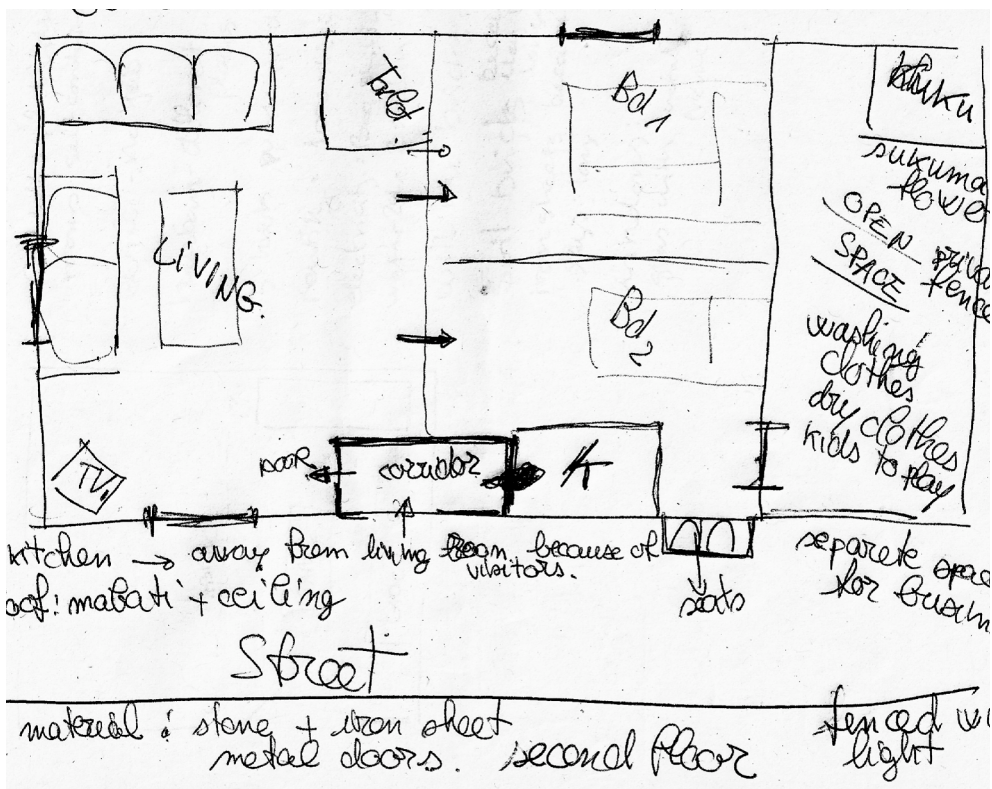 Toilet
Bd 1
kuku
sukuma
OPEN
SPACE
LIVING.
Bd 2
washing
clothes
dry clothes
kids to play
TV
DOOR
corridor
K
kitchen → away from living room because of
visitors.
roof: mabati + ceiling
seats
separete space
for
Street
material : stone + iron sheet
metal doors.
second floor
fenced
light